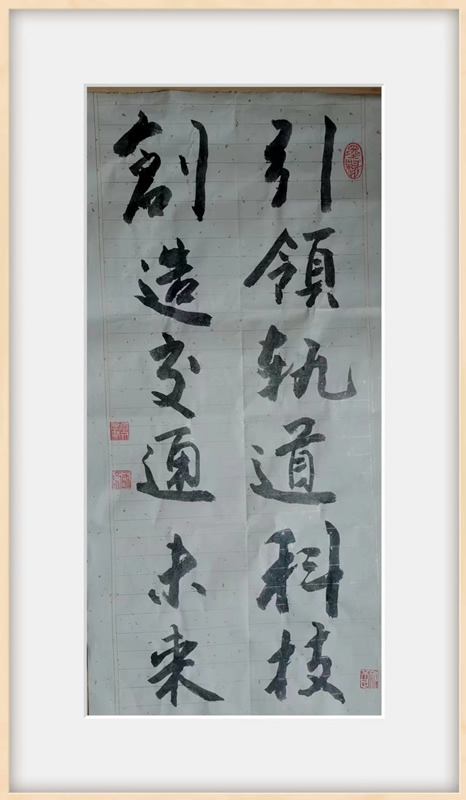 引領軌道科技
創造交通未来